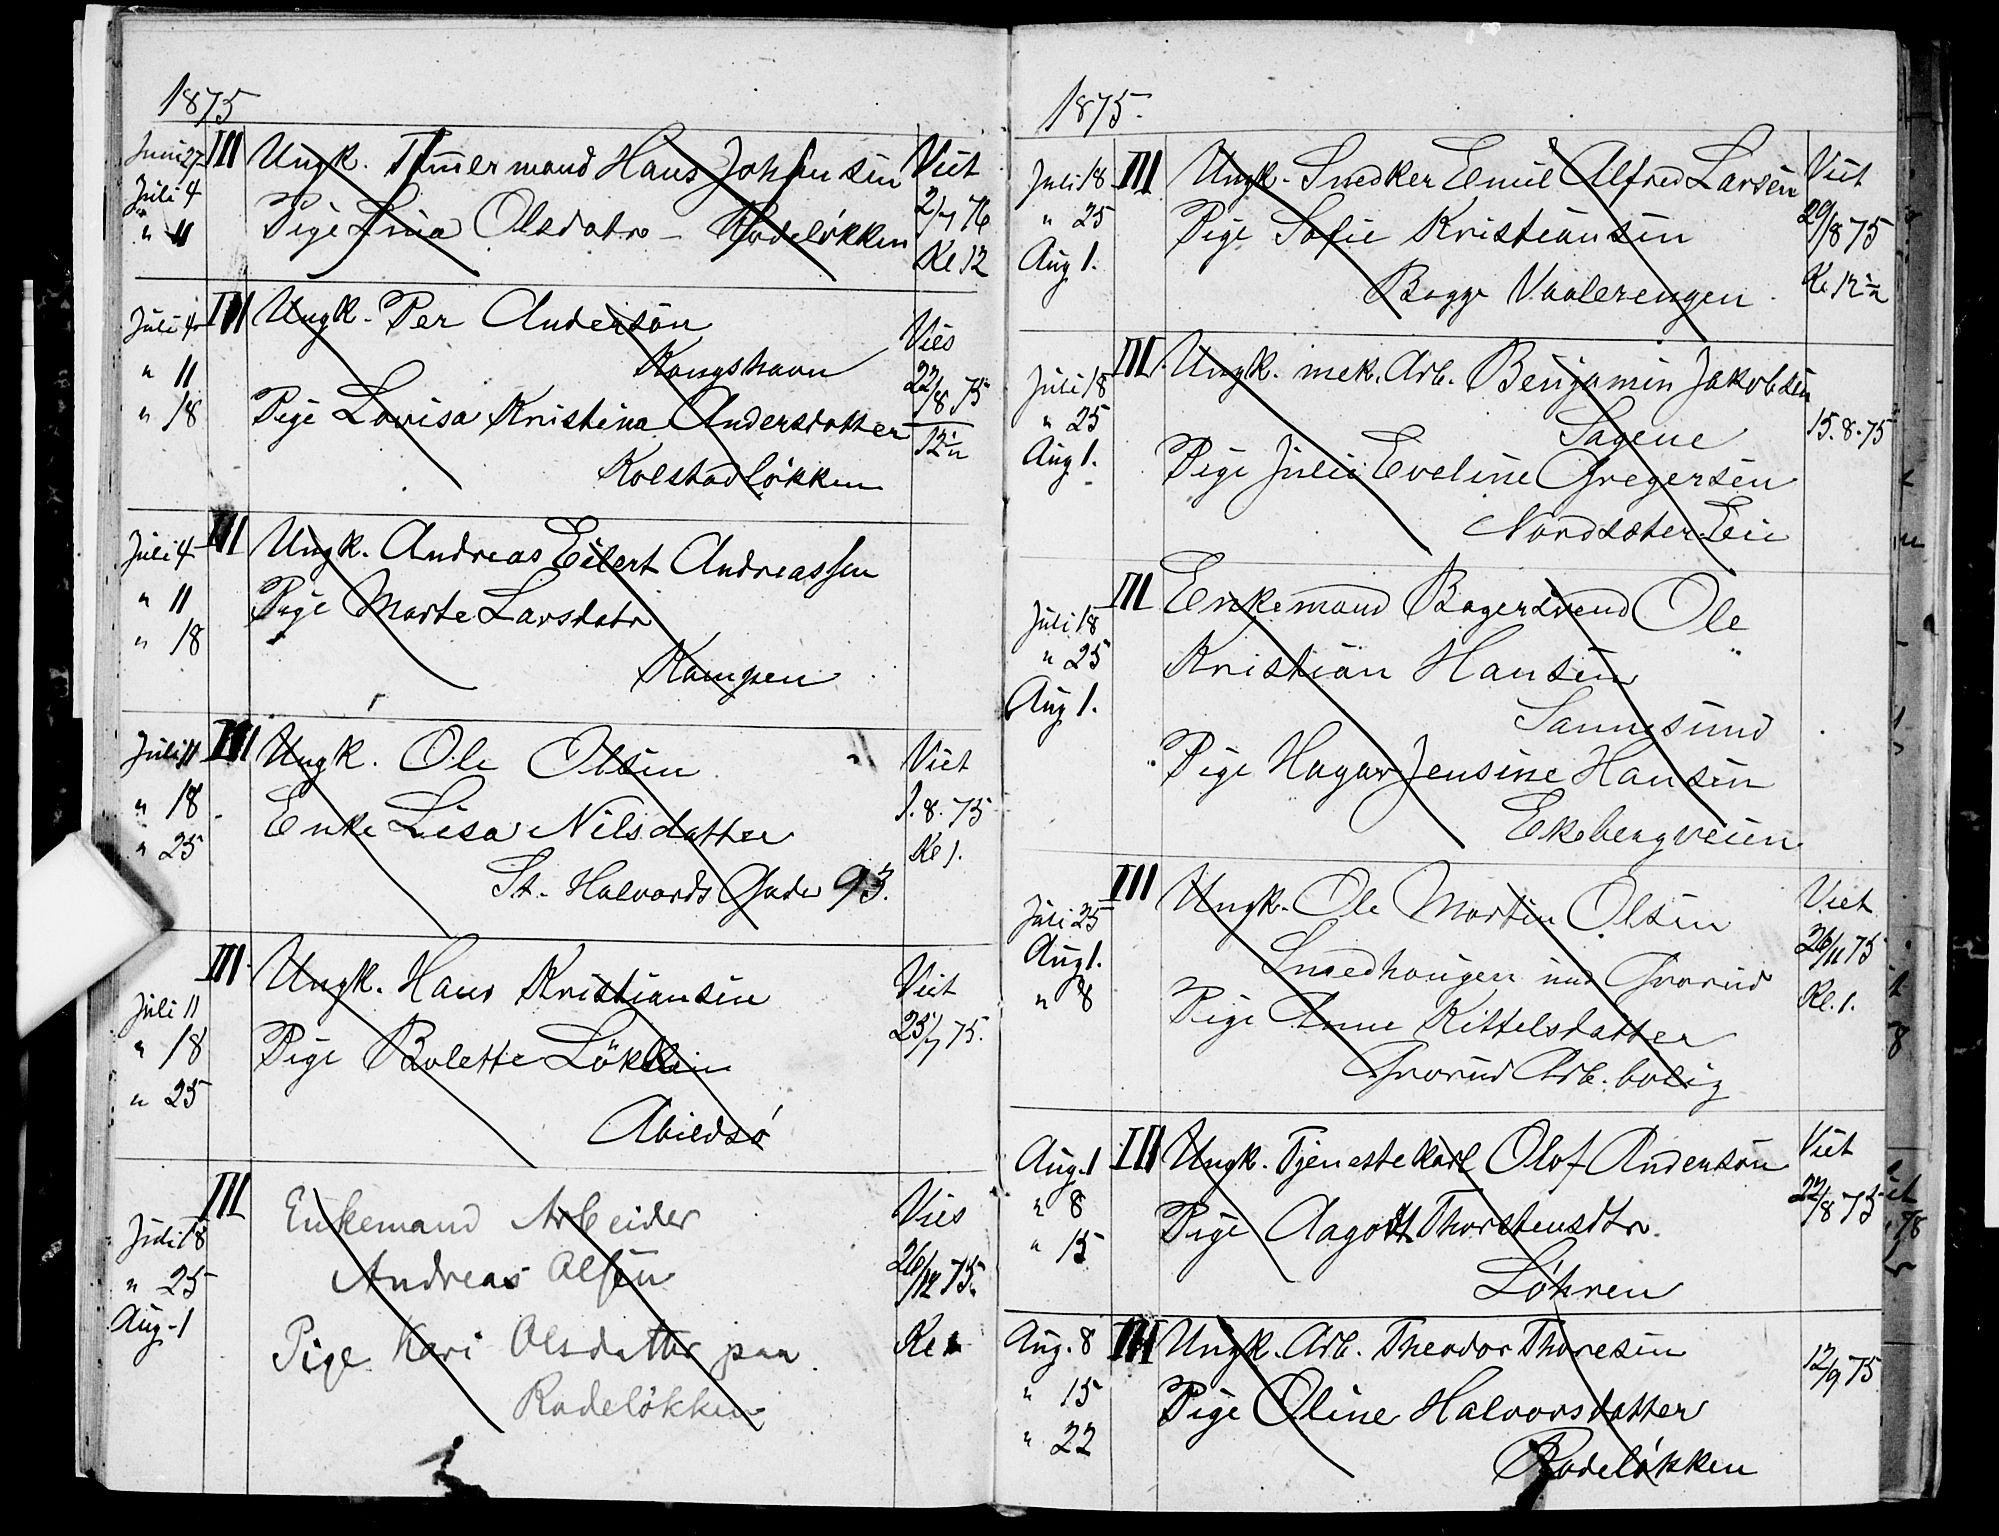 1875
Juni 27 III Ungk. Tømmermand Hans Johansen Viet
Juli 4 Pige Lina Olsdatr - Rodeløkken 2/7 76
" 11 Kl 12
Juli 4 III Ungk. Per Anderson Vies
" 11 Kongshavn 22/8 75
" 18 Pige Lovisa Kristina Andersdatter 12½
Kolstadløkken
Juli 4 III Ungk. Andreas Eilert Andreassen
" 11 Pige Marte Larsdatr
" 18 Kampen
Juli 11 III Ungk. Ole Olsen Viet
" 18 Enke Lisa Nilsdatter 1.8.75
" 25 St. Halvards Gade 93. Kl 1.
Juli 11 III Ungk. Hans Kristiansen Viet
" 18 Pige Bolette Løkken 25/7 75.
" 25 Abildsø
Juli 18 III Enkemand Arbeider Vies
" 25 Andreas Olsen 26/12 75.
Aug. 1 Pige Kari Olsdatter paa Kl 1
Rodeløkken
1875.
Juli 18 III Ungk. Snedker Emil Alfred Larsen Viet
" 25 Pige Sofie Kristiansen 29/8 75
Aug 1. Bagge Vaalerengen Kl 12½
Juli 18 III Ungk. mek. Arb. Benjamin Jakobsen
" 25 Sagene 15.8.75
Aug 1. Pige Julie Eveline Gregersen
Nordsæter Eie
Juli 18 III Enkemand Bagersvend Ole
" 25 Kristian Hansen
Aug 1. Sannesund
Pige Hagar Jensine Hansen
Ekebergveien
Juli 25 III Ungk. Ole Martin Olsen Viet
Aug 1. Smedhaugen und Grorud 26/11 75
" 8 Pige Anne Kittelsdatter Kl. 1.
Grorud Arb. bolig
Aug. 1 III Ungk. Tjenestekarl Olof Anderson Viet
" 8 Pige Aagodt Thorstensdtr. 22/8 75
" 15 Løhren
Aug. 8 III Ungk. Arb. Theodor Thoresen 12/9 75
" 15 Pige Oline Halvorsdatter
" 22 Rodeløkken